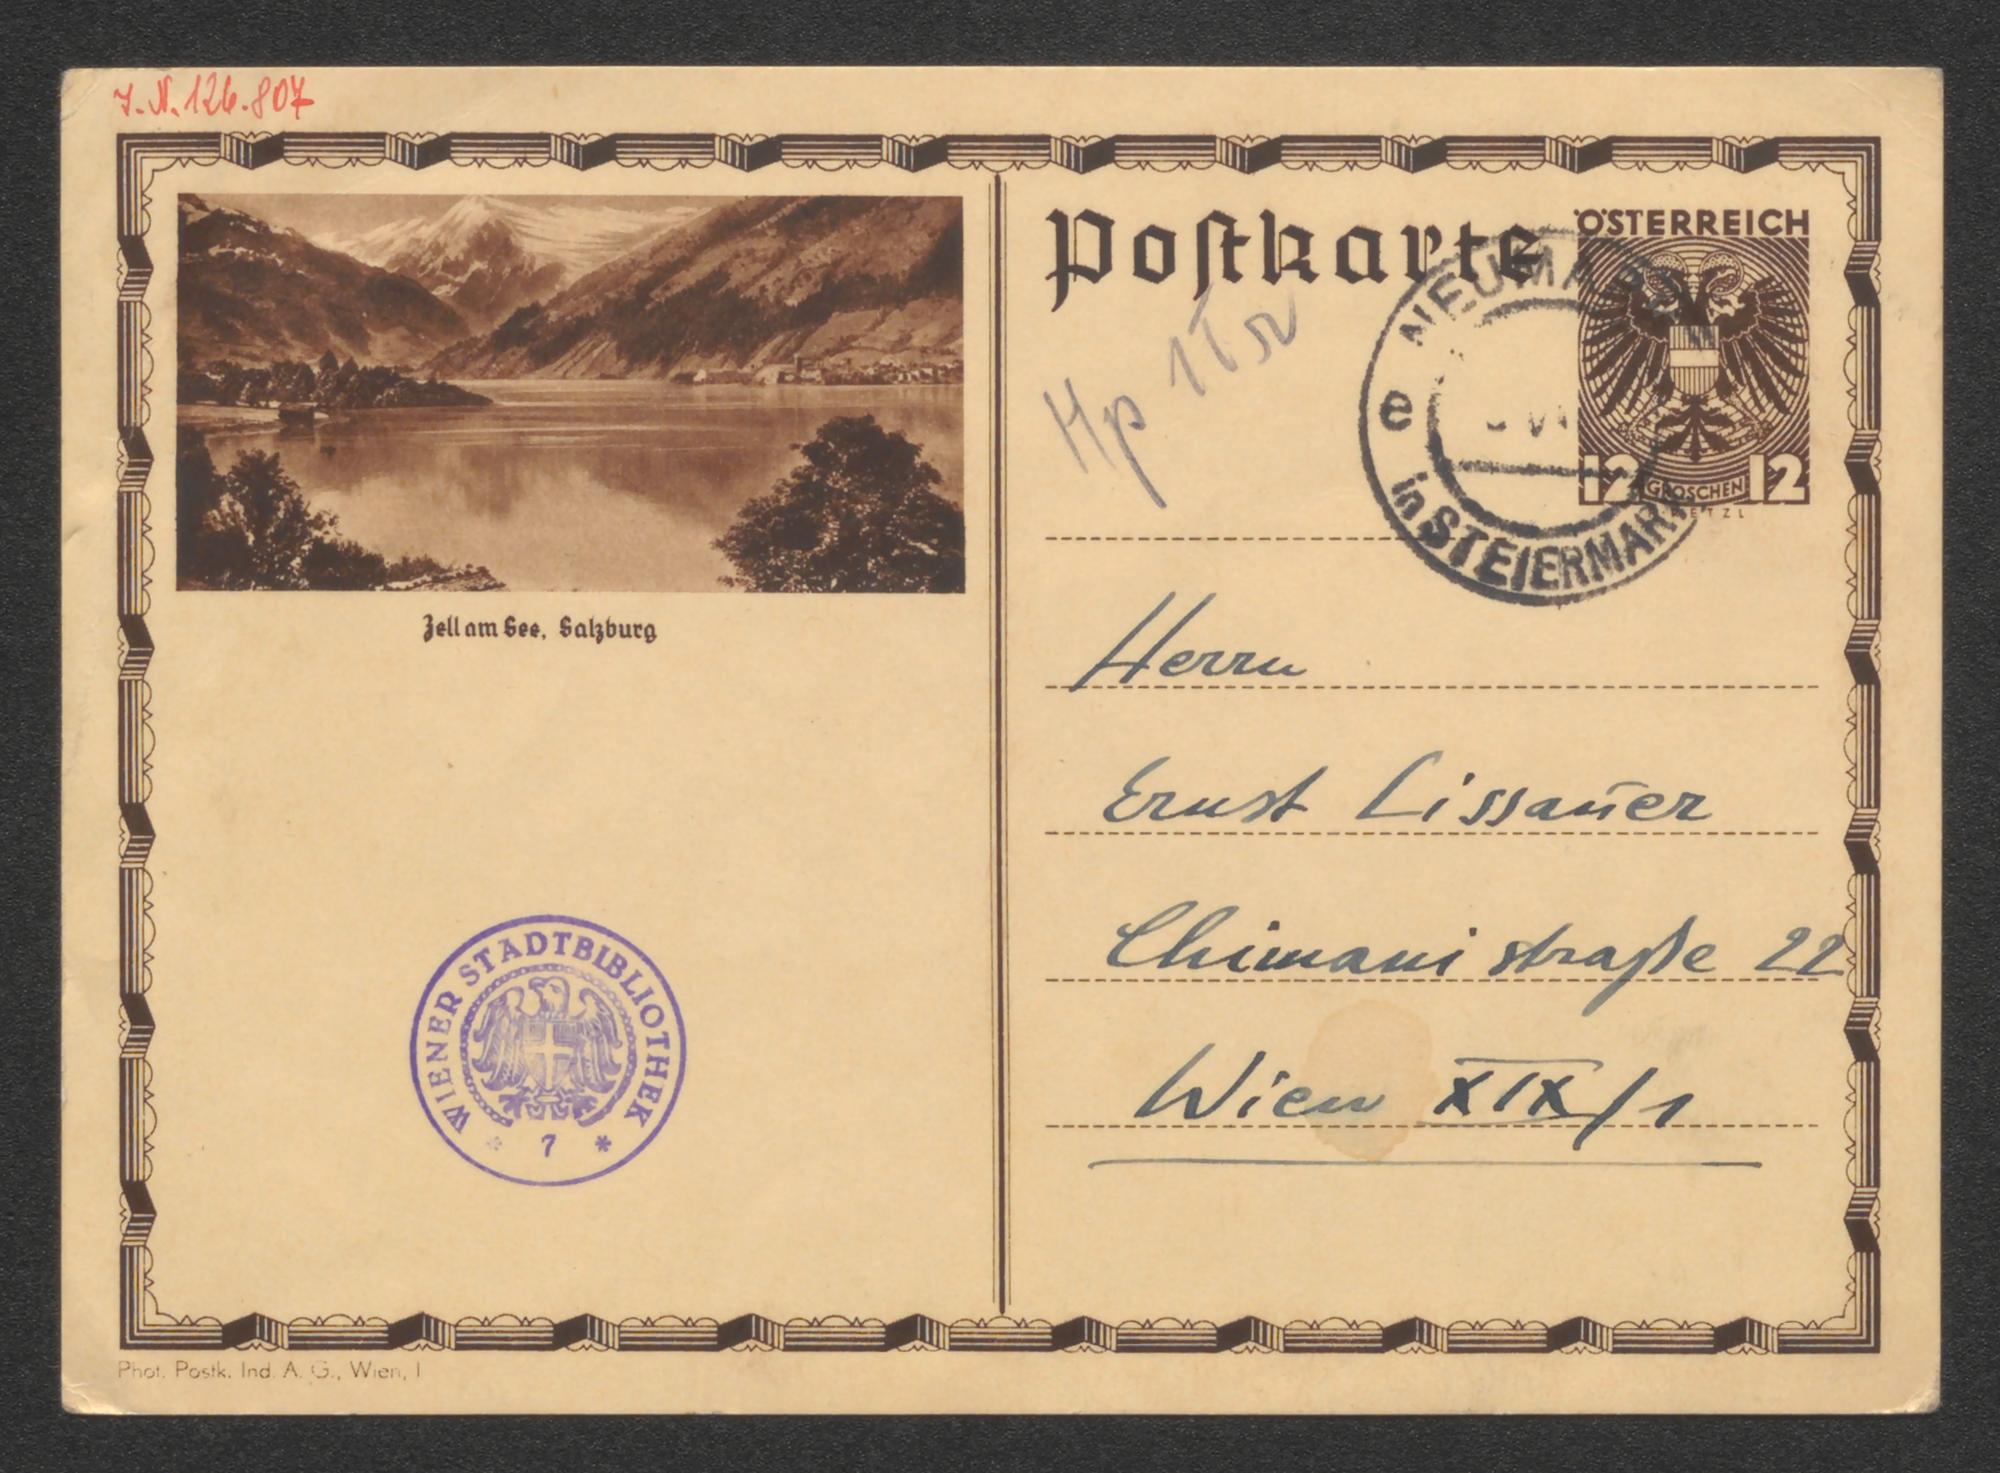 J.N. 126.807
Zell am See, Salzburg
WIENER STADTBIBLIOTHEK
* 7 *
Phot. Postk. Ind. A. G., Wien, I
Postkarte
ÖSTERREICH
12 GROSCHEN 12
NEUMARKT
e
in STEIERMARK
Herrn
Ernst Lissauer
Chimanistraße 22
Wien XIX/1